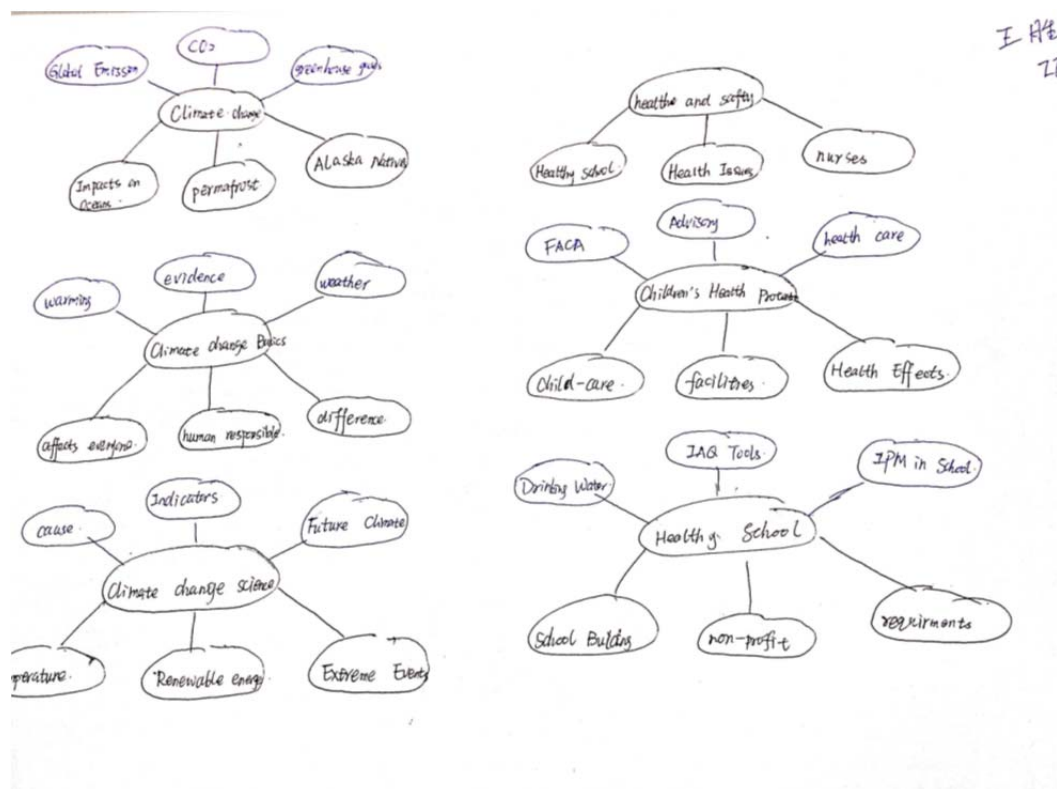 CO2
Global Emisson
greenhouse gases
Climate change
Impacts on
Oceans.
permafrost
Alaska Natives
evidence
warming
weather
Climate change Basics
affects everyone.
human responsible.
difference.
Indicators
cause.
Future Climate
Climate change science
perature.
Renewable energy
Extreme Events
王胜
healthe and safty
Healthy school.
Health Issues
nurses
Advisory
FACA
health care
Children's Health Protect
Child-care.
facilities.
Health Effects.
IAQ Tools.
Drinking Water.
IPM in School.
Healthy. School
School Building
non-profit
requirments